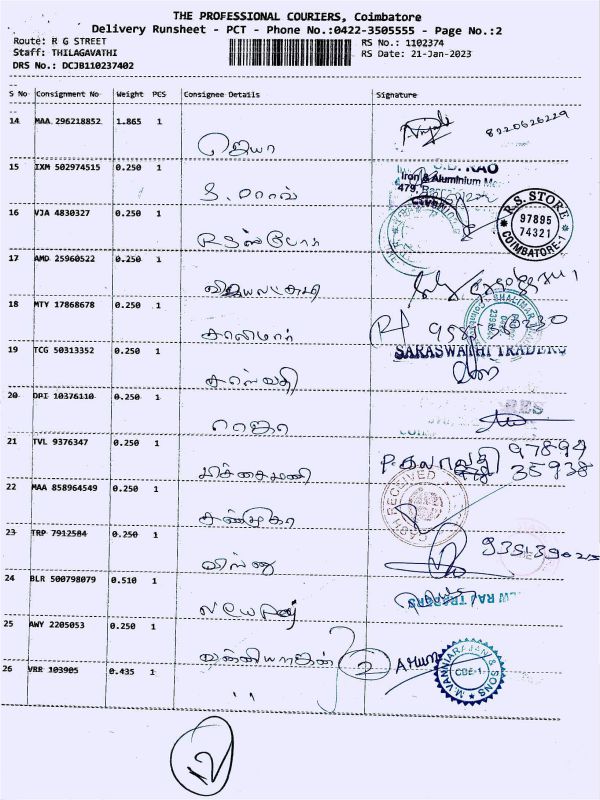 THE PROFESSIONAL COURIERS, Coimbatore
Delivery Runsheet - PCT - Phone No.:0422-3505555 - Page No.:2
Route: R G STREET
Staff: THILAGAVATHI
DRS No.: DCJB110237402
RS No.: 1102374
RS Date: 21-Jan-2023
S No Consignment No Weight PCS Consignee Details Signature
14 MAA 296218852 1.865 1 ஜெயா 8220626229
15 IXM 502974515 0.250 1 S. ராவ்
RAO
Iron & Aluminium
479,
16 VJA 4830327 0.250 1 RS ஸ்டோர்
R.S. STORE
97895
74321
COIMBATORE-1
17 AMD 25960522 0.250 1 விஜயலட்சுமி
18 MTY 17868678 0.250 1 சாலிமார்
SHALIMAR
19 TCG 50313352 0.250 1 சரஸ்வதி
SARASWATHI TRADERS
20 DPI 10376110 0.250 1 ராஜா
21 TVL 9376347 0.250 1 பிச்சைமணி P. கலாவதி 97894
35938
22 MAA 858964549 0.250 1 சண்முகா
CASH RECEIVED
23 TRP 7912584 0.250 1 விஷ்ணு
24 BLR 500798079 0.510 1
25 AWY 2205053 0.250 1 வன்னியராஜன் 2
M. VANNIARAJAN & SONS
CBE-1
26 VRR 103905 0.435 1 "
12